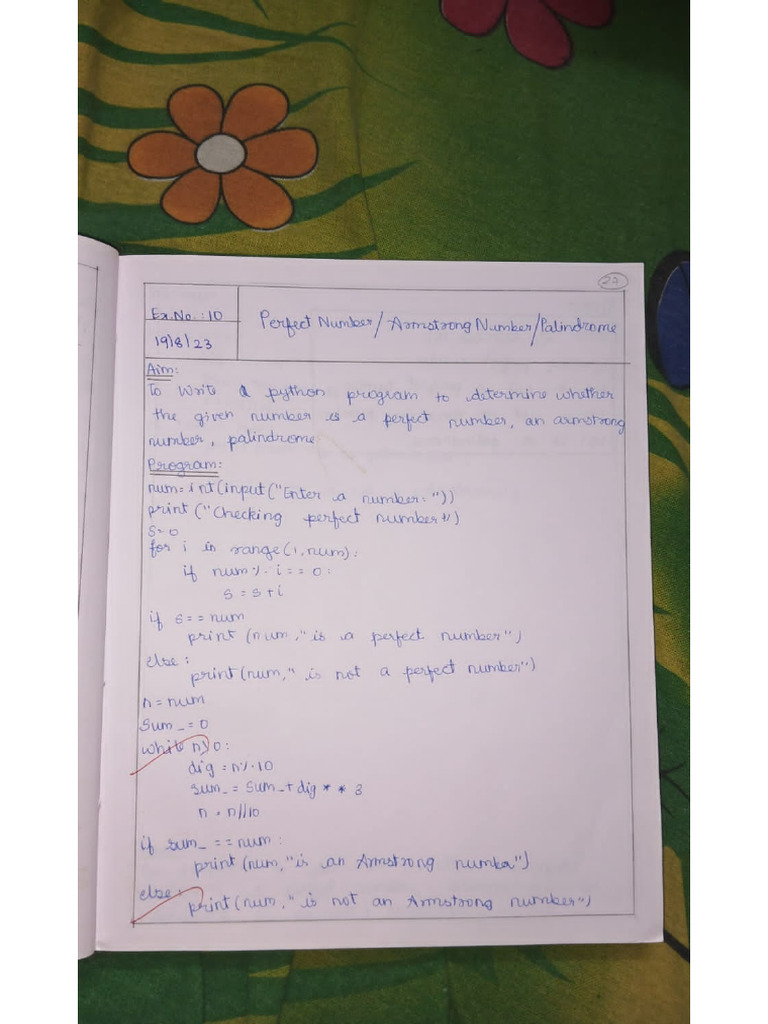 27
Ex.No.:10
Perfect Number/Armstrong Number/Palindrome
19/8/23
Aim:
To write a python program to determine whether
the given number is a perfect number, an armstrong
number, palindrome
Program:
num=int(input("Enter a number:"))
print("Checking perfect number")
s=0
for i in range(1,num):
if num%i==0:
s=s+i
if s==num
print(num,"is a perfect number")
else:
print(num,"is not a perfect number")
n=num
sum_=0
while n>0:
dig=n%10
sum_=sum_+dig**3
n=n//10
if sum_==num:
print(num,"is an Armstrong number")
else:
print(num,"is not an Armstrong number")